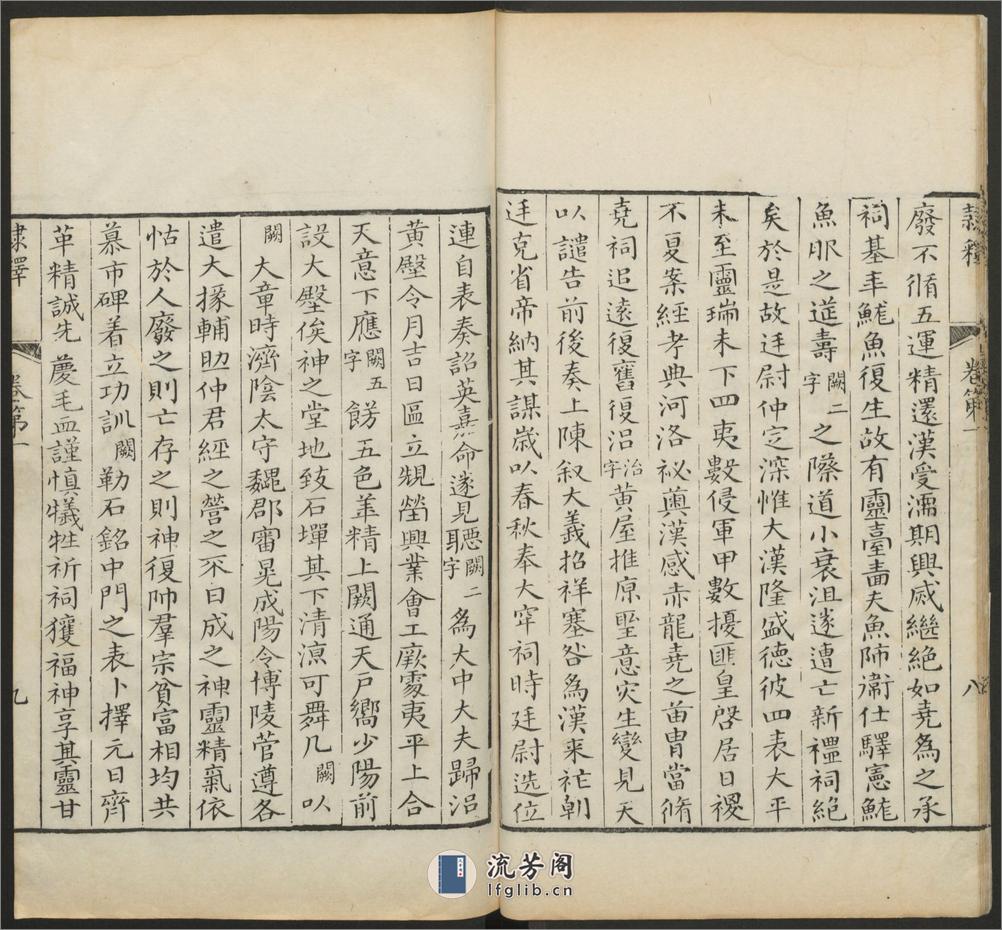 隸釋 卷第一 八
廢不脩五運精還漢受濡期興烕繼絕如堯為之承
祠基丰鮏魚復生故有靈臺啚夫魚師衞仕驛憲鮏
魚胙之莚壽闕二字之際道小衰沮遂遭亡新禋祠絕
矣於是故廷尉仲㝎深惟大漢隆盛德彼四表大平
未至靈瑞未下四夷數侵軍甲數擾匪皇啓居日禝
不夏案經考典河洛祕奧漢感赤龍堯之苗胄當脩
堯祠追遠復舊復沿治字黃屋推原聖意灾生變見天
以譴告前後奏上陳叙大義招祥塞咎為漢来祚朝
廷克省帝納其謀歲以春秋奉大窂祠時廷尉选位
連自表奏詔英嘉命遂見聽闕二字為大中大夫歸沿
黃壂令月吉日區立䂓塋興業會工厥處夷平上合
天意下應闕五字餝五色羊精上闕通天戸嚮少陽前
設大壂俟神之堂地致石墠其下清凉可舞几闕以
闕大章時濟陰太守魏郡審晃成陽令博陵菅遵各
遣大掾輔助仲君經之營之不日成之神靈精氣依
怙於人廢之則亡存之則神復帥羣宗貧富相均共
慕市碑着立功訓闕勒石銘中門之表卜擇元日齊
革精誠先慶毛血謹慎犧牲祈祠獲福神享其靈甘
隸釋 卷第一 九
流芳阁
lfglib.cn